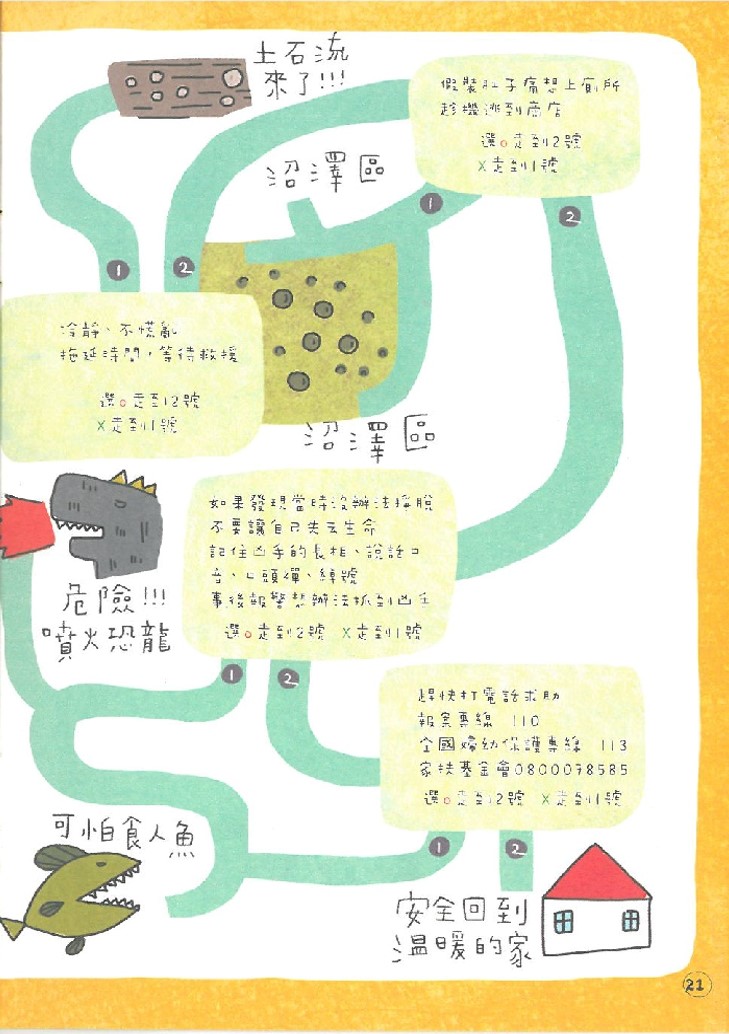 土石流
來了!!!
假裝肚子痛想上廁所
趁機逃到商店
選o走到2號
x走到1號
沼澤區
1
2
1
2
冷靜、不慌亂
拖延時間，等待救援
選o走到2號
x走到1號
沼澤區
如果發現當時沒辦法掙脫
不要讓自己失去生命
記住凶手的長相、說話口
音、口頭禪、綽號
事後報警想辦法抓到凶手
選o走到2號 x走到1號
危險!!!
噴火恐龍
1
2
趕快打電話求助
報案專線 110
全國婦幼保護專線 113
家扶基金會0800078585
選o走到2號 x走到1號
可怕食人魚
1
2
安全回到
溫暖的家
21